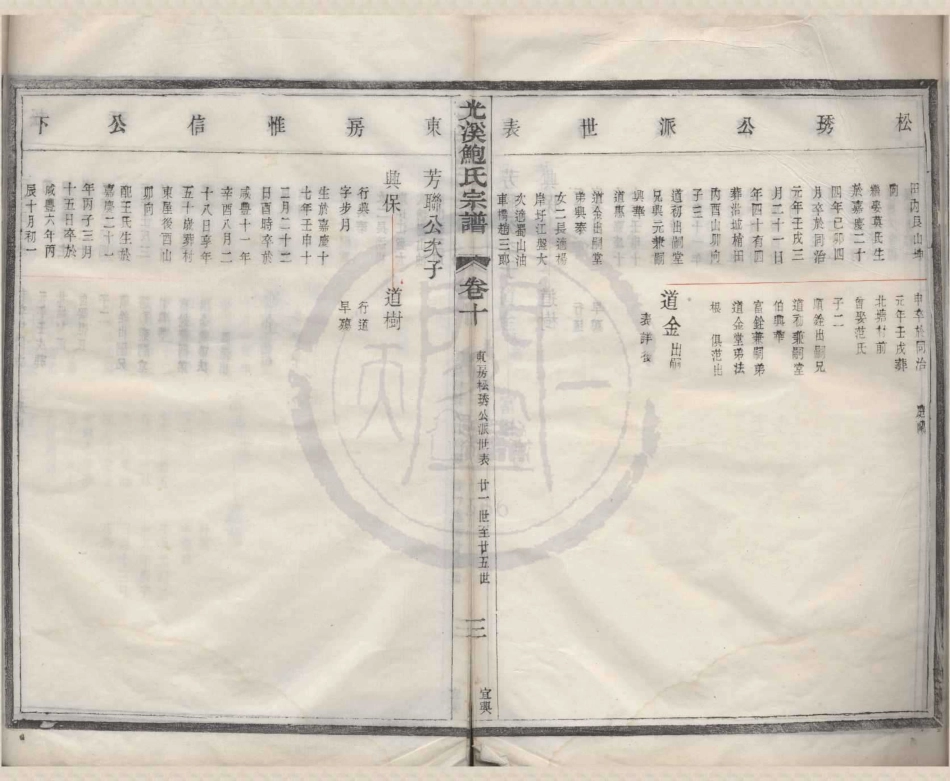 松琇公派世表
田內艮山坤
向
繼娶莫氏生
於嘉慶二十
四年己卯四
月卒於同治
元年壬戌三
月二十一日
年四十有四
葬岀坡楂田
丙酉山卯向
子三
道初出嗣堂
兄興元兼嗣
興華
道惠
道金出嗣堂
弟興泰
女二長適楊
岸圩江興大
次適蜀山油
車橋趙三郎
申卒於同治
元年壬戌葬
北塘廿前
曾娶范氏
子二
廣銓出嗣兄
道初兼嗣堂
伯興華
富銓兼嗣弟
道金堂弟法
根 俱范出
道金 出嗣
表詳後
光溪鮑氏宗譜
卷十
東房松琇公派世表 廿一世至廿五世
三
宜興
東房惟信公下
芳聯公次子
興保
行興
字步月
生於嘉慶十
七年壬申十
二月二十二
日酉時卒於
咸豐十一年
辛酉八月二
十八日享年
五十歲葬村
東崖後酉山
卯向
配王氏生於
嘉慶二十一
年丙子三月
十五日卒於
咸豐六年丙
辰十月初一
道樹
行道
早殤